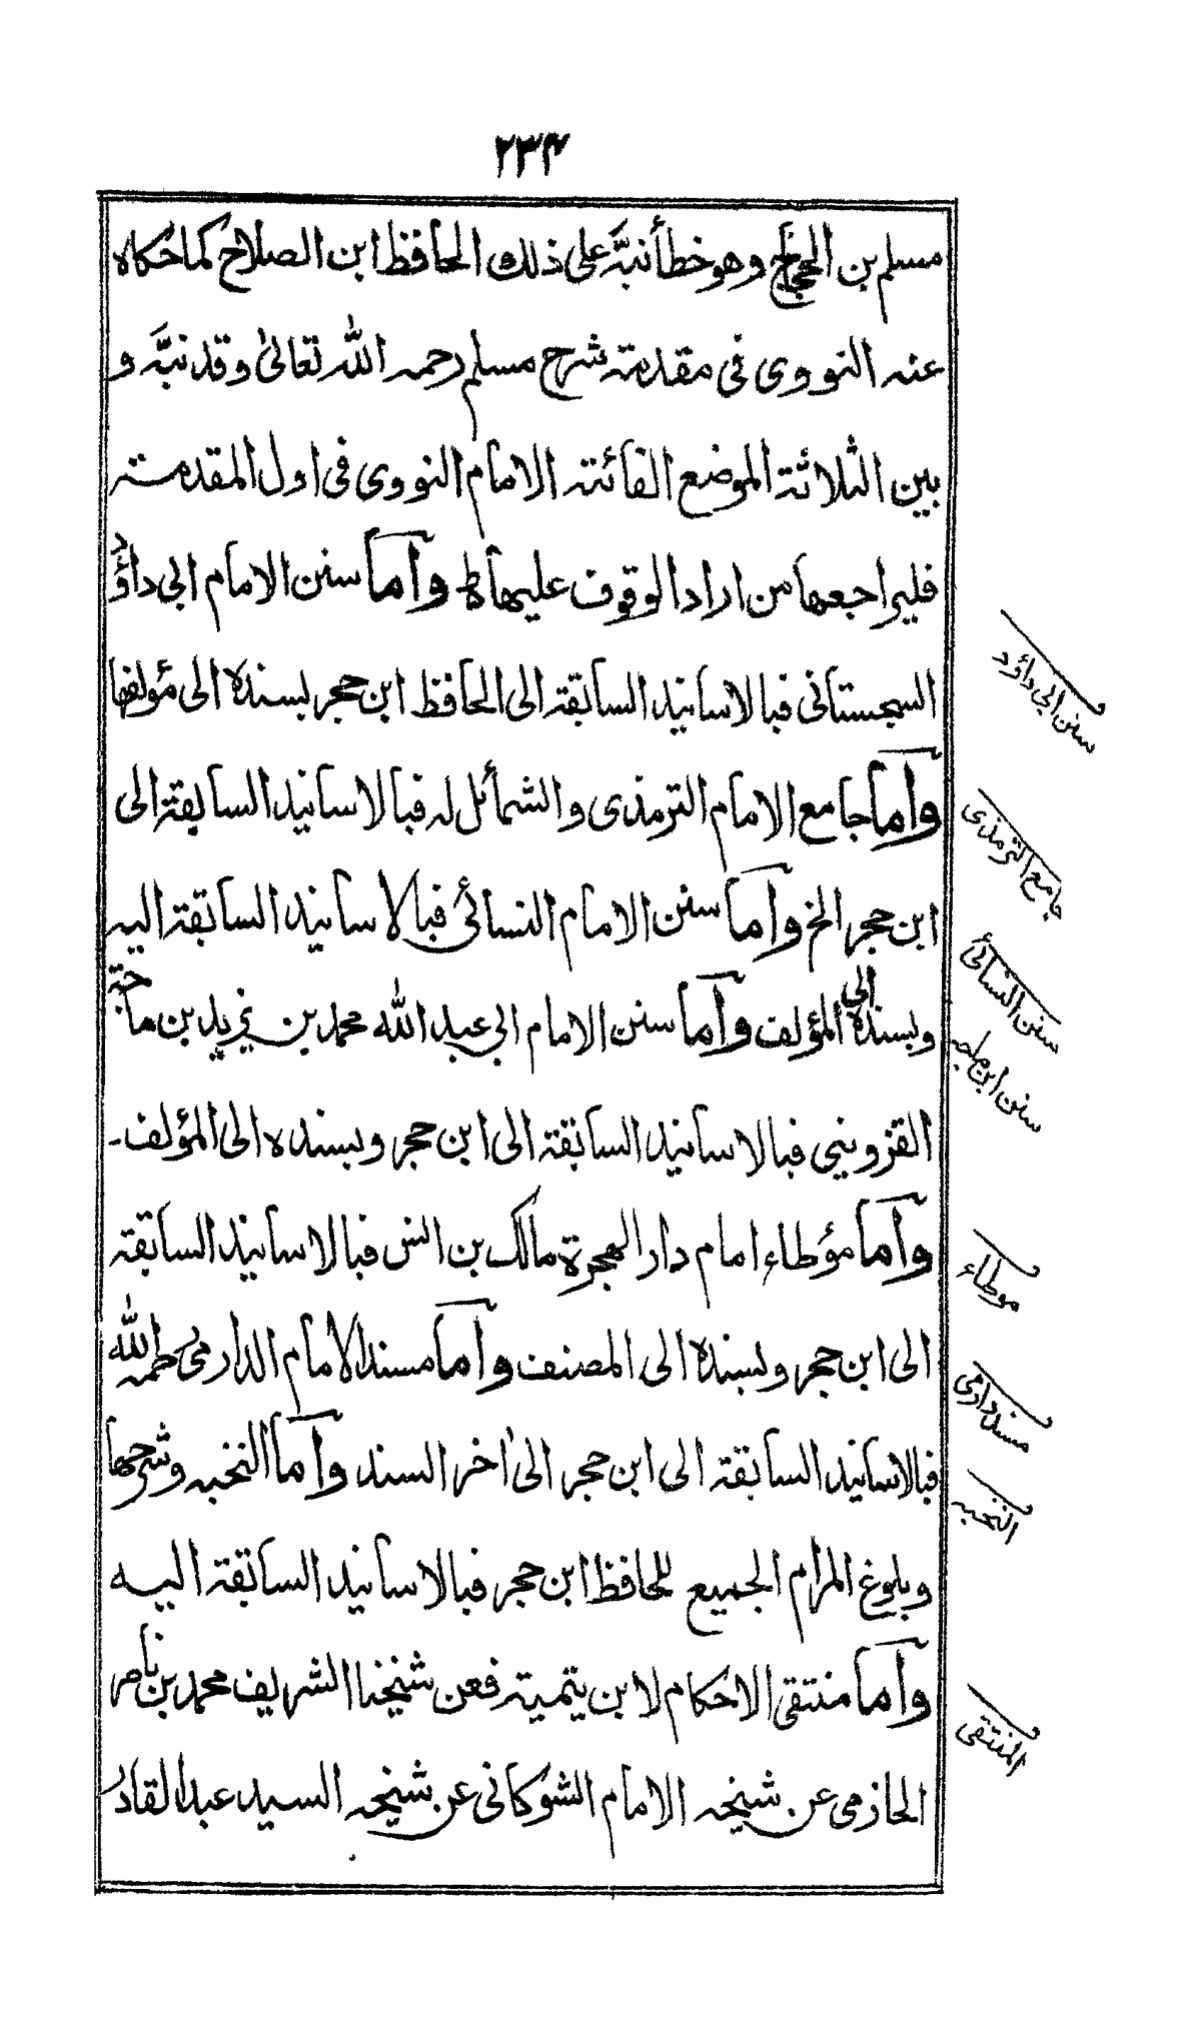 ۲۳۴
مسلم بن الحجاج وهو خطأ نبَّه على ذلك الحافظ ابن الصلاح كما حكاه
عنه النووى فى مقدمة شرح مسلم رحمه الله تعالىٰ وقد نبَّه و
بين الثلاثة الموضع الفائتة الامام النووى فى اول المقدمة
فليراجعها من اراد الوقوف عليها ط وآما سنن الامام ابى داؤد
السجستانى فبالاسانيد السابقة الى الحافظ ابن حجر بسنده الى مؤلفها
وآما جامع الامام الترمذى والشمائل له فبالاسانيد السابقة الى
ابن حجر الخ وآما سنن الامام النسائى فبالاسانيد السابقة اليه
وبسنده الى المؤلف وآما سنن الامام ابى عبد الله محمد بن يزيد بن ماجة
القزوينى فبالاسانيد السابقة الى ابن حجر وبسنده الى المؤلف۔
وآما مؤطاء امام دار الهجرة مالك بن انس فبالاسانيد السابقة
الى ابن حجر وبسنده الى المصنف وآما مسند الامام الدارمى رحمه الله
فبالاسانيد السابقة الى ابن حجر الىٰ اٰخر السند وآما النخبه وشرحها
وبلوغ المرام الجميع للحافظ ابن حجر فبالاسانيد السابقة اليه
وآما منتقى الاحكام لابن يتمية فعن شيخنا الشريف محمد بن ناصر
الحازمى عن شيخه الامام الشوكانى عن شيخه السيد عبد القادر
سنن ابى داؤد
جامع الترمذى
سنن النسائى
سنن ابن ماجه
موطاء
مسند دارمى
النخبه
المنتقى